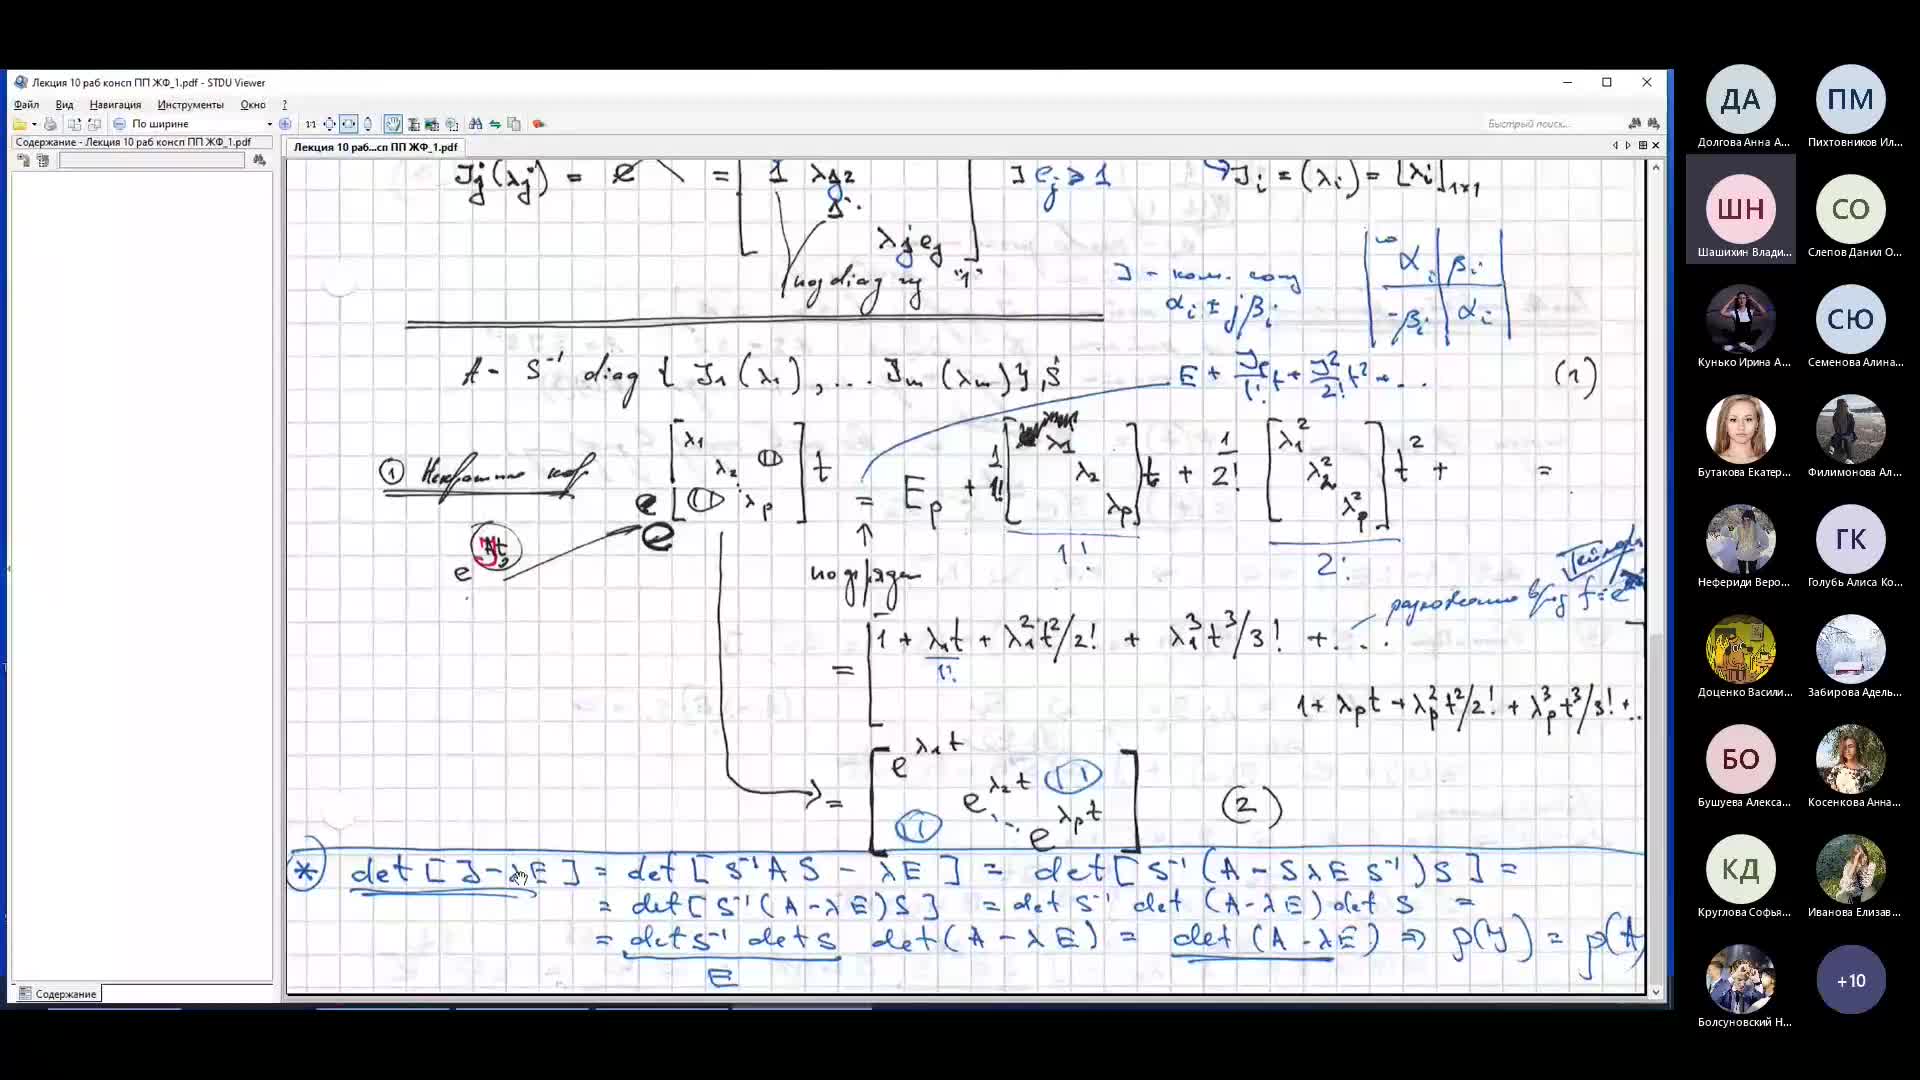 Лекция 10 раб консп ПП ЖФ_1.pdf - STDU Viewer
Файл Вид Навигация Инструменты Окно ?
По ширине
1:1
Быстрый поиск...
Содержание - Лекция 10 раб консп ПП ЖФ_1.pdf
Лекция 10 раб...сп ПП ЖФ_1.pdf
J_j(λ_j) =
= [ 1 λ_j2
λ_j e_j ]
∃ e_j > 1
J_i = (λ_i) = [λ_i]_1×1
поддиаг "1"
α_i ± jβ_i
α_i β_i
-β_i α_i
A = S⁻¹ diag { J_1(λ_1), ... J_m(λ_m) }, S
E + J_p/1! t + J²/2! t² + ...
(1)
①
e^[λ_1 λ_2 0 0 λ_p] t = E_p + 1/1! [λ_1 λ_2 λ_p] t + 1/2! [λ_1² λ_2² λ_p²] t² + =
1! 2!
e
= [ 1 + λ_1t/1! + λ_1²t²/2! + λ_1³t³/3! + ...
1 + λ_p t + λ_p² t²/2! + λ_p³ t³/3! + ..
= [ e^λ_1t e^λ_2t 0 0 ... e^λ_pt ] (2)
* det [J - λE] = det [S⁻¹AS - λE] = det [S⁻¹(A - SλES⁻¹)S] =
= det [S⁻¹(A - λE)S] = det S⁻¹ det (A - λE) det S =
= det S⁻¹ det S det(A - λE) = det (A - λE) ⇒ ρ(J) = ρ(A)
E
Содержание
ДА
Долгова Анна А...
ПМ
Пихтовников Ил...
ШН
Шашихин Влади...
СО
Слепов Данил О...
Кунько Ирина А...
СЮ
Семенова Алина...
Бутакова Екатер...
Филимонова Ал...
Нефериди Веро...
ГК
Голубь Алиса Ко...
Доценко Васили...
Забирова Адель...
БО
Бушуева Алекса...
Косенкова Анна...
КД
Круглова Софья...
Иванова Елизав...
Болсуновский Н...
+10